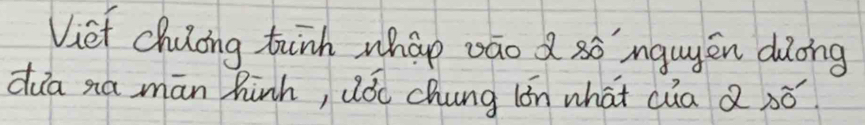 Viết chương trình nhập vào 2 số nguyên dương
đưa ra màn hình, ước chung lớn nhất của 2 số.